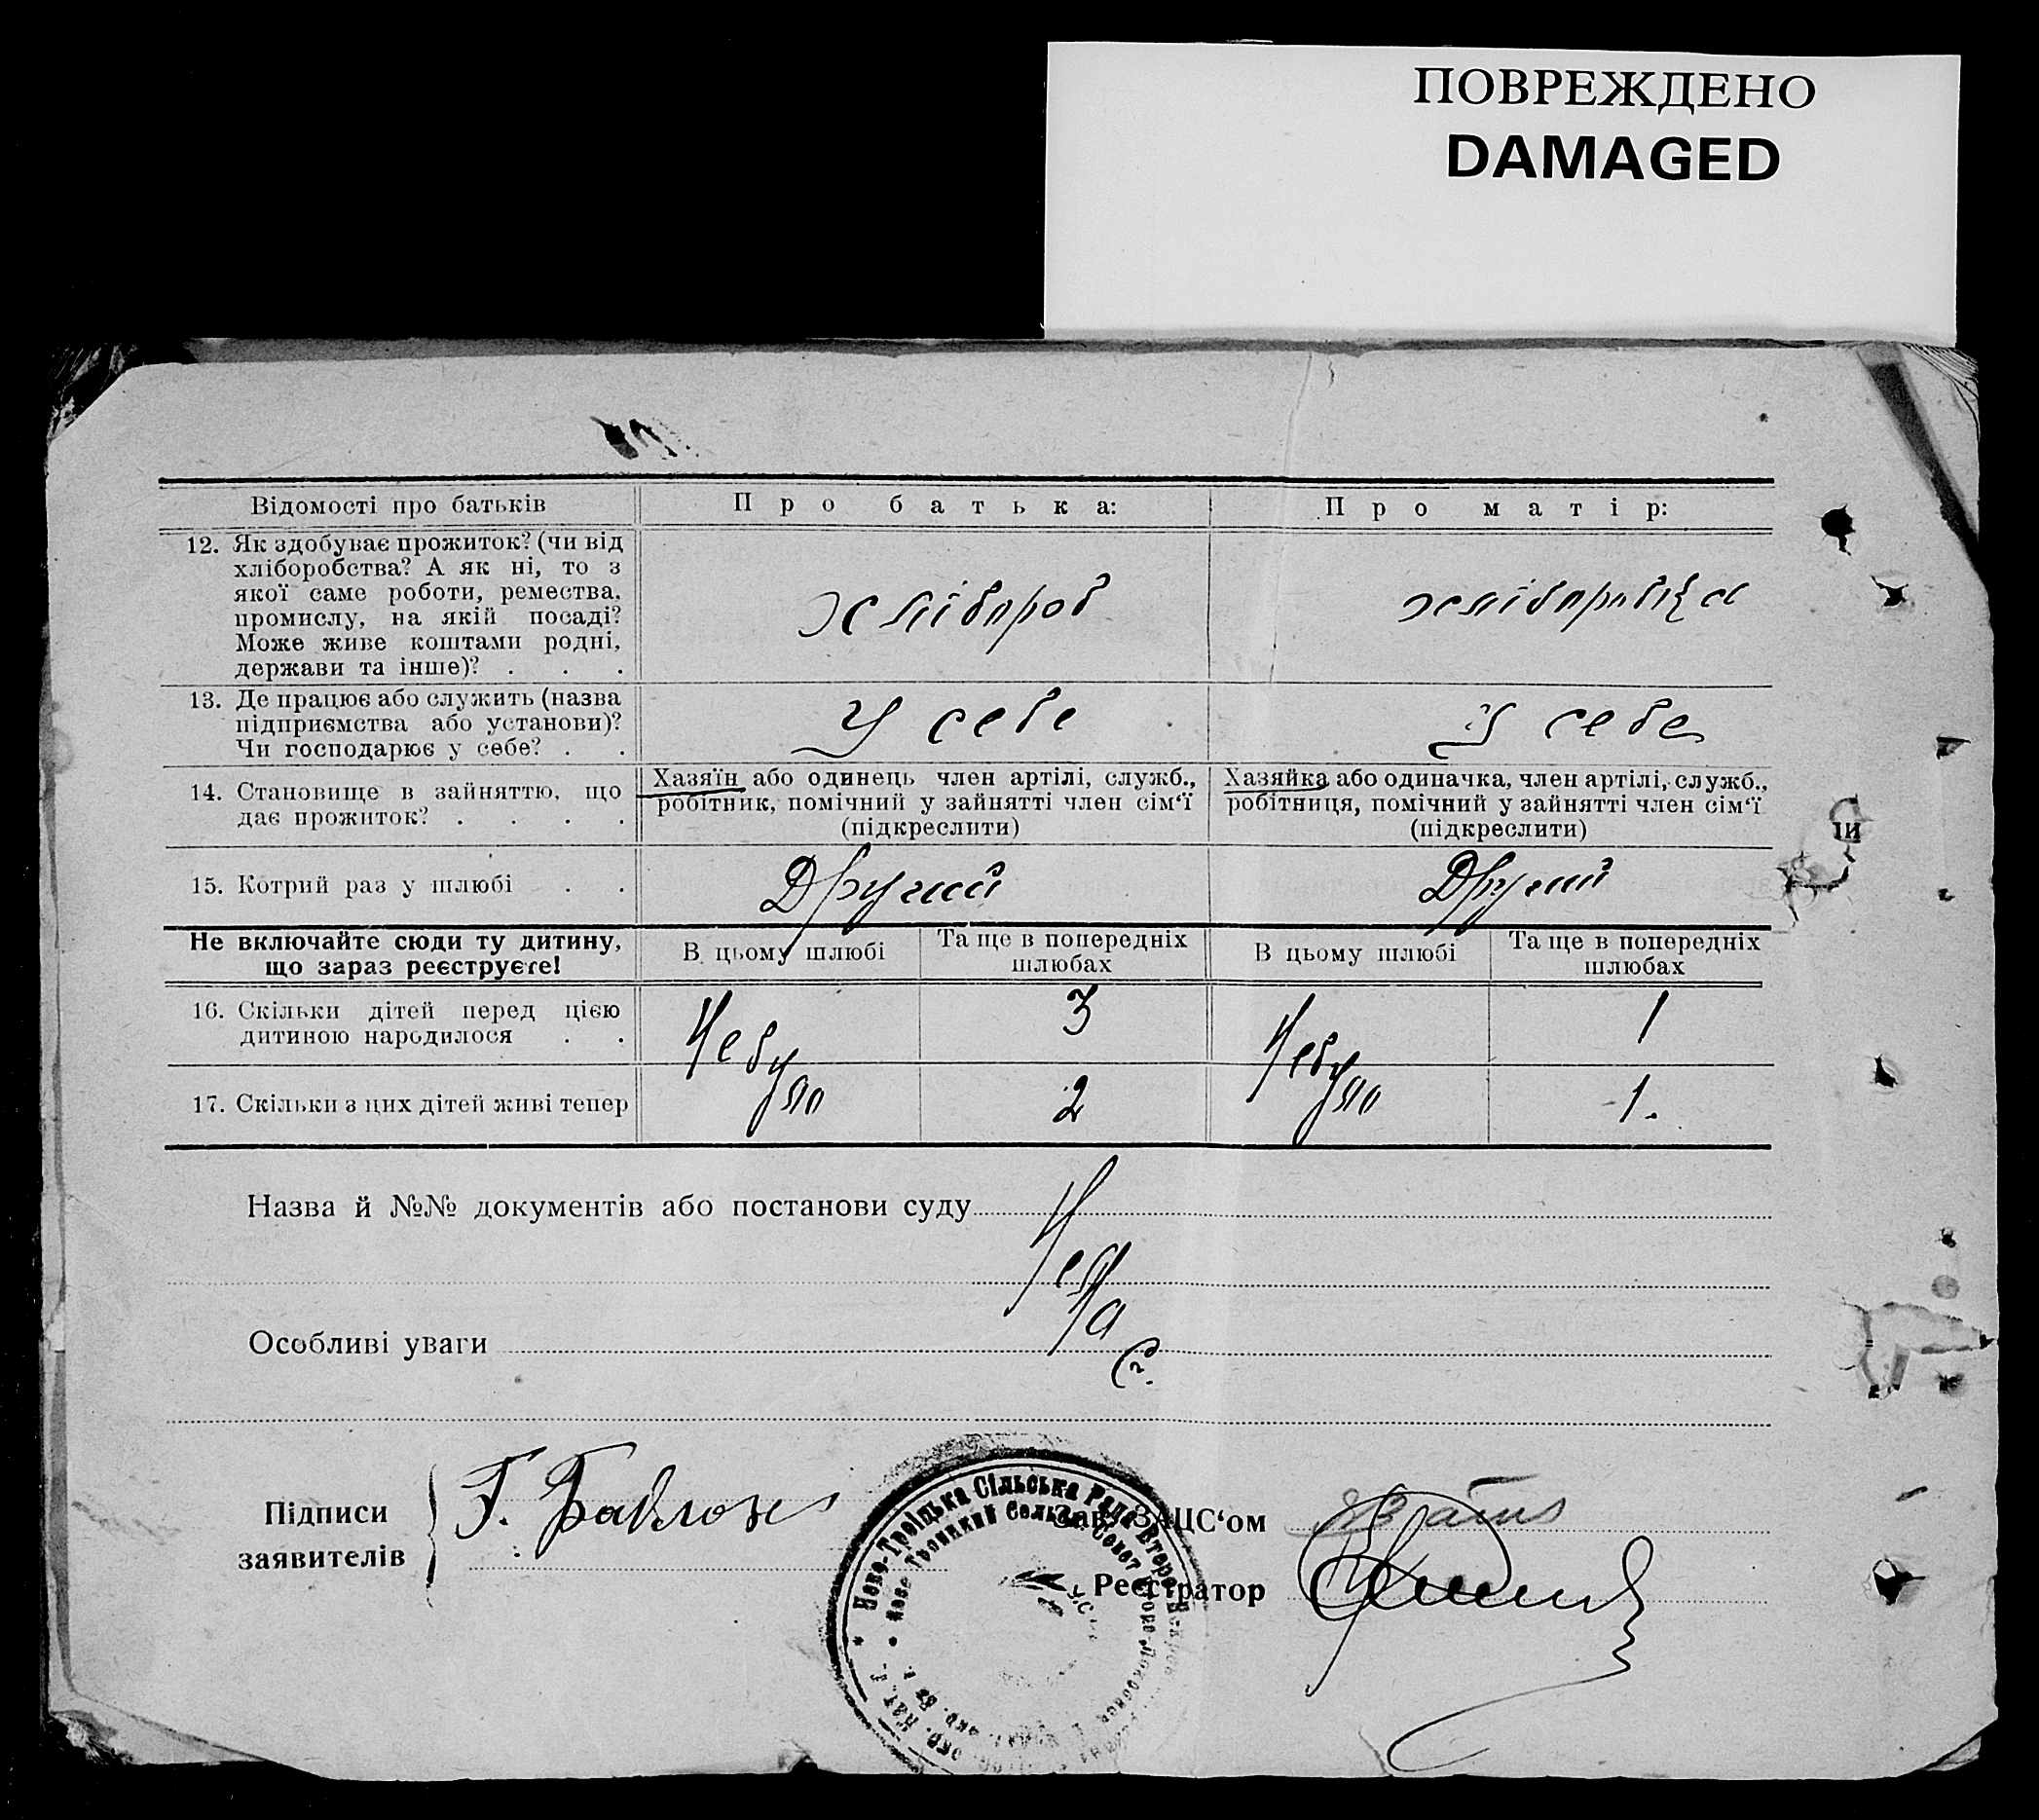 ПОВРЕЖДЕНО
DAMAGED
Відомості про батьків
Про батька:
Про матір:
12. Як здобуває прожиток? (чи від
хліборобства? А як ні, то з
якої саме роботи, ремества,
промислу, на якій посаді?
Може живе коштами родні,
держави та інше)? . . .
хлібороб
хліборобка
13. Де працює або служить (назва
підприємства або установи)?
Чи господарює у себе? . .
У себе
У себе
14. Становище в зайняттю, що
дає прожиток? . . . .
Хазяїн або одинець член артілі, служб.,
робітник, помічний у зайнятті член сім‘ї
(підкреслити)
Хазяйка або одиначка, член артілі, служб.,
робітниця, помічний у зайнятті член сім‘ї
(підкреслити)
15. Котрий раз у шлюбі . .
Другий
Другий
Не включайте сюди ту дитину,
що зараз реєструєте!
В цьому шлюбі
Та ще в попередніх
шлюбах
В цьому шлюбі
Та ще в попередніх
шлюбах
16. Скільки дітей перед цією
дитиною народилося . .
Небуло
3
Небуло
1
17. Скільки з цих дітей живі тепер
2
1.
Назва й №№ документів або постанови суду
Особливі уваги
Підписи
заявителів
Г.
Зав. ЗАЦС‘ом
Реєстратор
Ново-Троїцька Сільська Рада
Ново Троицкий Сельск. Совет